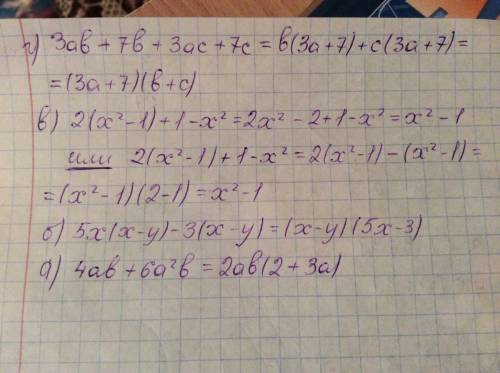 г) 3ab + 7b + 3ac + 7c = b(3a+7) + c(3a+7) =
= (3a+7)(b+c)
в) 2(x²-1)+1-x² = 2x² - 2+1-x² = x² - 1
или 2(x²-1)+1-x² = 2(x²-1) - (x²-1) =
= (x²-1)(2-1) = x²-1
б) 5x(x-y)-3(x-y) = (x-y)(5x-3)
а) 4ab + 6a²b = 2ab(2 + 3a)